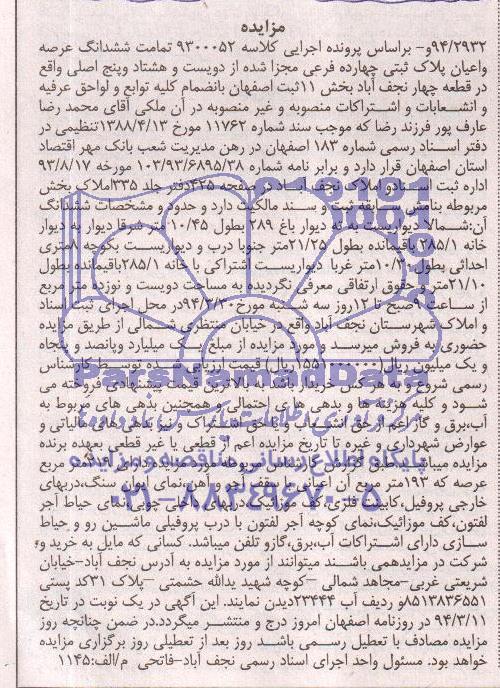 مزایده
۹۴/۲۹۳۲و- براساس پرونده اجرایی کلاسه ۹۳۰۰۰۵۲ تمامت ششدانگ عرصه
واعیان پلاک ثبتی چهارده فرعی مجزا شده از دویست و هشتاد وپنج اصلی واقع
در قطعه چهار نجف آباد بخش ۱۱ثبت اصفهان بانضمام کلیه توابع و لواحق عرفیه
و انشعابات و اشتراکات منصوبه و غیر منصوبه در آن ملکی آقای محمد رضا
عارف پور فرزند رضا که موجب سند شماره ۱۱۷۶۲ مورخ ۱۳۸۸/۴/۱۳تنظیمی در
دفتر اسناد رسمی شماره ۱۸۳ اصفهان در رهن مدیریت شعب بانک مهر اقتصاد
استان اصفهان قرار دارد و برابر نامه شماره ۱۰۳/۹۳/۶۸۹۵/۳۸ مورخه ۹۳/۸/۱۷
اداره ثبت اسنادو املاک نجف آباد در صفحه ۴۲۵دفتر جلد ۳۳۵املاک بخش
مربوطه بنامش سابقه ثبت و سند مالکیت دارد و حدود و مشخصات ششدانگ
آن:شمالا دیواریست به ته دیوار باغ ۲۸۹ بطول ۱۰/۴۵ متر شرقا دیوار به دیوار
خانه ۲۸۵/۱باقیمانده بطول ۲۱/۲۵متر جنوبا درب و دیواریست بکوچه ۸متری
احداثی بطول ۱۰/۱۰متر غربا دیواریست اشتراکی با خانه ۲۸۵/۱باقیمانده بطول
۲۱/۱۰متر و حقوق ارتفاقی معرفی نگردیده به مساحت دویست و نوزده متر مربع
از ساعت ۹ صبح تا ۱۲روز سه شنبه مورخ ۹۴/۳/۲۰در محل اجرای ثبت اسناد
و املاک شهرستان نجف آباد واقع در خیابان منتظری شمالی از طریق مزایده
حضوری به فروش میرسد و مورد مزایده از مبلغ یک میلیارد وپانصد و پنجاه
و یک میلیون ریال( ریال) قیمت ارزیابی شده توسط کارشناس
رسمی شروع و به هر کس خریدار باشد به بالاترین قیمت پیشنهادی فروخته می
شود و کلیه هزینه ها و بدهی های احتمالی و همچنین بدهی های مربوط به
آب،برق و گاز اعم از حق انشعاب و یا حق اشتراک و نیز بدهی های مالیاتی و
عوارض شهرداری و غیره تا تاریخ مزایده اعم از قطعی یا غیر قطعی بعهده برنده
مزایده میباشد.طبق گزارش کارشناس مربوطه مورد مزایده دارای ۲۱۹متر مربع
عرصه که ۱۹۳متر مربع آن اعیانی با سقف آجر و آهن،نمای دیوار سنگ،دربهای
خارجی پروفیل،کابینت فلزی،کف موزائیک،دربهای داخلی چوبی،نمای حیاط آجر
لفتون،کف موزائیک،نمای کوچه آجر لفتون با درب پروفیلی ماشین رو و حیاط
سازی دارای اشتراکات آب،برق،گازو تلفن میباشد. کسانی که مایل به خرید و
شرکت در مزایدهمی باشند میتوانند از مورد مزایده به آدرس نجف آباد-خیابان
شریعتی غربی-مجاهد شمالی -کوچه شهید یدالله حشمتی -پلاک ۳۱کد پستی
۸۵۱۳۸۳۶۵۵۱و ردیف آب ۲۳۴۴۴دیدن نمایند. این آگهی در یک نوبت در تاریخ
۹۴/۳/۱۱ در روزنامه اصفهان امروز درج و منتشر میگردد.در ضمن چنانچه روز
مزایده مصادف با تعطیل رسمی باشد روز بعد از تعطیلی روز برگزاری مزایده
خواهد بود. مسئول واحد اجرای اسناد رسمی نجف آباد-فاتحی م/الف:۱۱۴۵
ParsNamadData
پایگاه اطلاع رسانی مناقصه و مزایده
۰۲۱-۸۸۳۴۹۶۷۰-۵